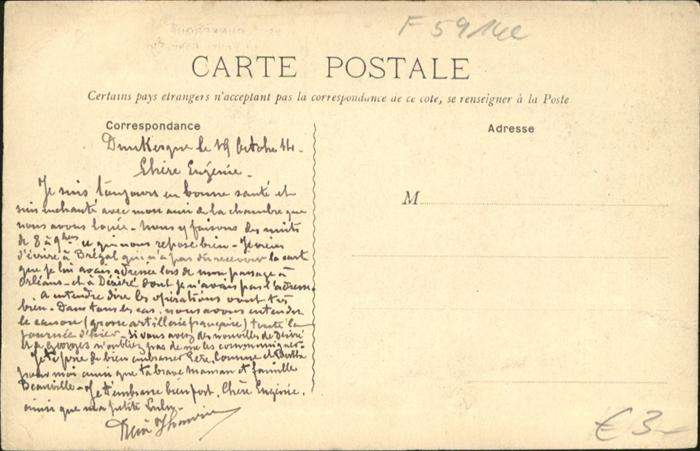 F 5914
CARTE POSTALE
Certains pays etrangers n'acceptant pas la correspondance de ce cote, se renseigner à la Poste
Correspondance
Adresse
Dunkerque le 19 Octobre 14.
Chère Eugénie.
Je suis toujours en bonne santé et
suis enchanté avec mon ami de la chambre que
nous avons louée. Nous y faisons des nuits
de 8 à 9 hes ce qui nous repose bien. Je viens
d'écrire à Brégal qui n'a pas dû recevoir la carte
que je lui avais adressée lors de mon passage à
Orléans. et à Désiré dont je n'avais pas l'adresse.
A entendre dire les opérations vont très
bien. Dans tous les cas, nous avons entendu
le canon (grosse artillerie française) toute la
journée d'hier. Si vous avez des nouvelles de Désiré
et Georges n'oubliez pas de me les communiquer.
Je te prie de bien embrasser Père, Louise et
pour moi ainsi que ta brave maman et famille
Beauville. Je t'embrasse bien fort, Chère Eugénie.
ainsi que ma petite
M
€ 3-